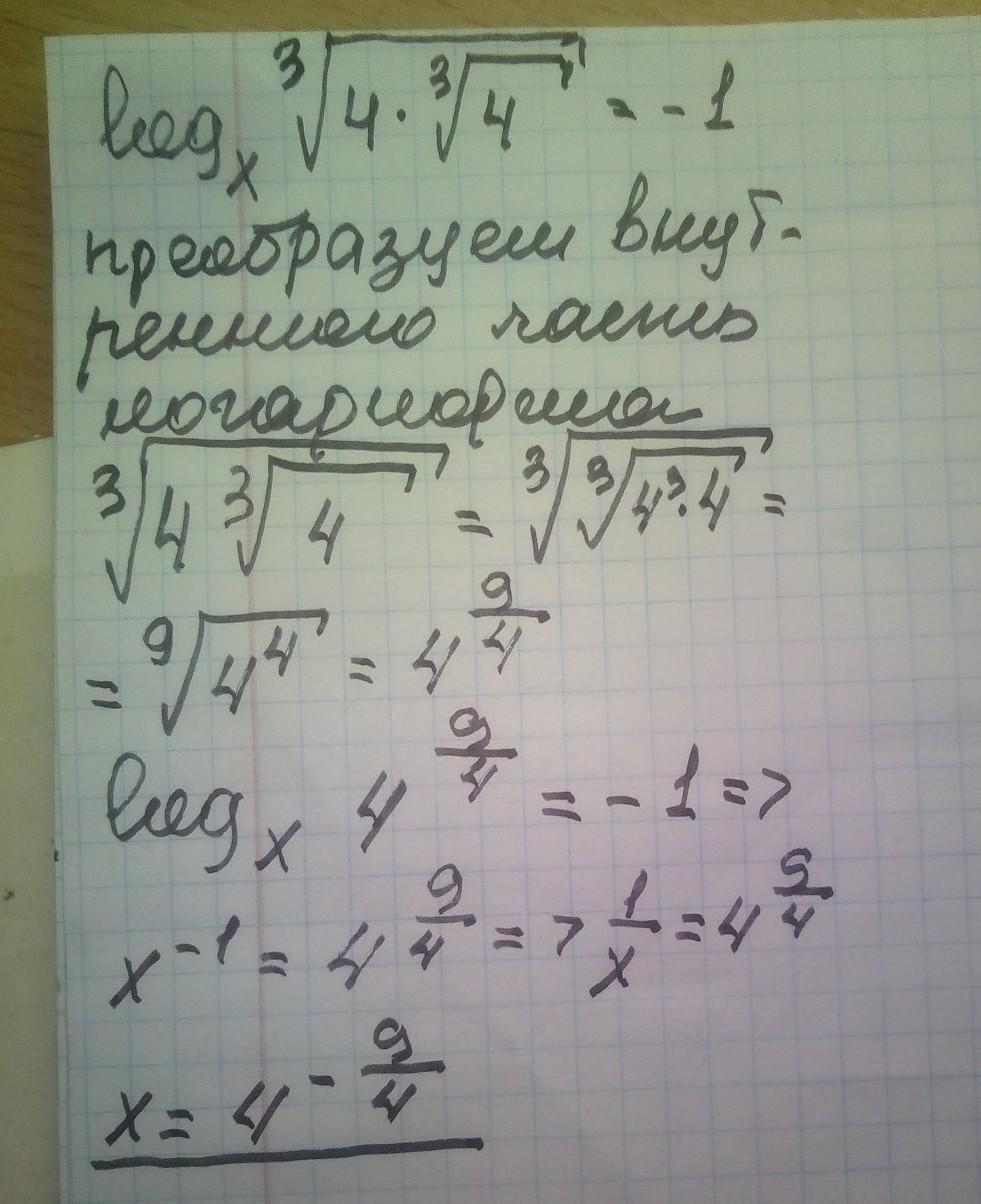 logₓ ∛(4·∛4) = -1
преобразуем внут-
реннюю часть
логарифма
∛(4∛4) = ∛(∛(4³·4)) =
= ⁹√(4⁴) = 4^(9/4)
logₓ 4^(9/4) = -1 =>
x⁻¹ = 4^(9/4) => 1/x = 4^(9/4)
x = 4^(-9/4)